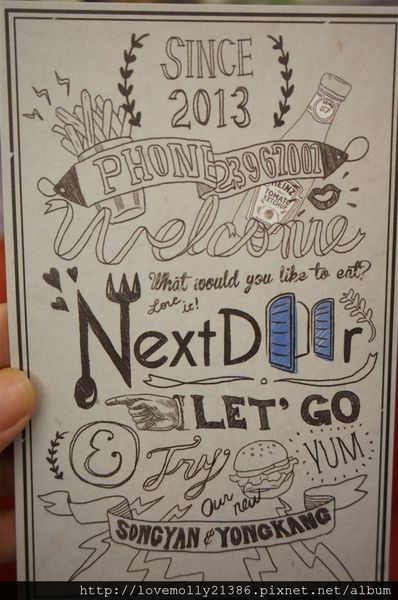 SINCE
2013
PHONE 23967001
57
HEINZ
TOMATO
KETCHUP
Welcome
What would you like to eat?
Love it!
NextDoor
LET' GO
& Try
YUM
Our new
SONGYAN & YONGKANG
http://lovemolly21386.pixnet.net/album